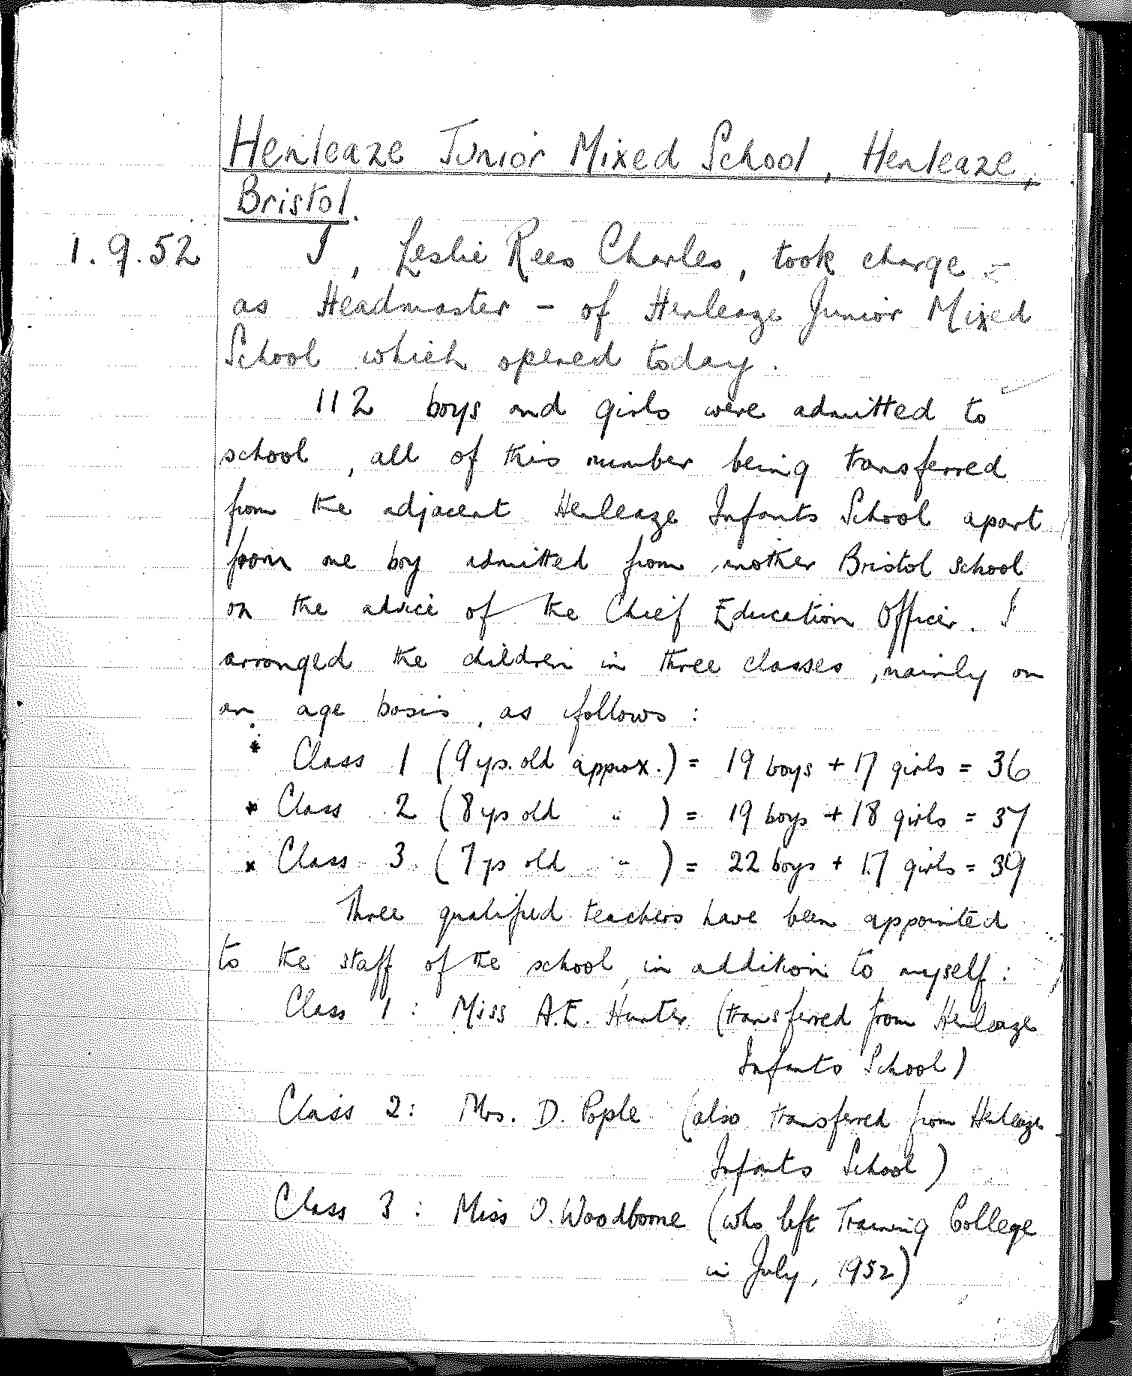 Henleaze Junior Mixed School, Henleaze,
Bristol.
1.9.52 I, Leslie Rees Charles, took charge -
as Headmaster - of Henleaze Junior Mixed
School which opened today.
112 boys and girls were admitted to
school, all of this number being transferred
from the adjacent Henleaze Infants School apart
from one boy admitted from another Bristol school
on the advice of the Chief Education Officer. I
arranged the children in three classes, mainly on
an age basis, as follows:
* Class 1 (9 yrs. old approx.) = 19 boys + 17 girls = 36
* Class 2 (8 yrs old " ) = 19 boys + 18 girls = 37
* Class 3 (7 yrs old " ) = 22 boys + 17 girls = 39
Three qualified teachers have been appointed
to the staff of the school, in addition to myself:
Class 1: Miss A.E. Hunter (transferred from Henleaze
Infants School)
Class 2: Mrs. D. Pople (also transferred from Henleaze
Infants School)
Class 3: Miss O. Woodborne (who left Training College
in July, 1952)